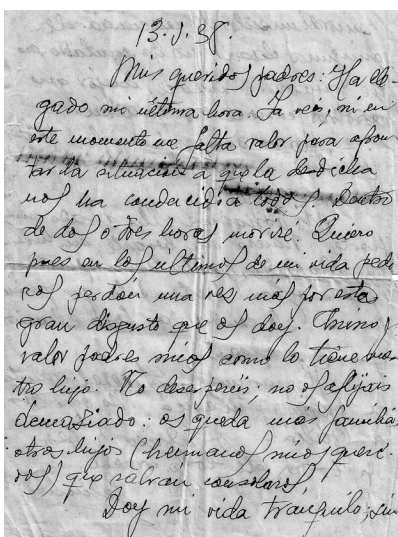 13.I.38.
Mis queridos padres: Ha lle-
gado mi última hora. Ya veis, ni en
este momento me falta valor para afron-
tar la situación a que la desdicha
nos ha conducido a todos. Dentro
de dos o tres horas moriré. Quiero
pues en los ultimos de mi vida pedi-
ros perdón una vez más por este
gran disgusto que os doy. Animo y
valor padres míos como lo tiene vues-
tro hijo. No desespereis; no os aflijais
demasiado: os queda más familia
otros hijos (hermanos míos queri-
dos) que sabrán consolaros
Doy mi vida tranquilo, sin